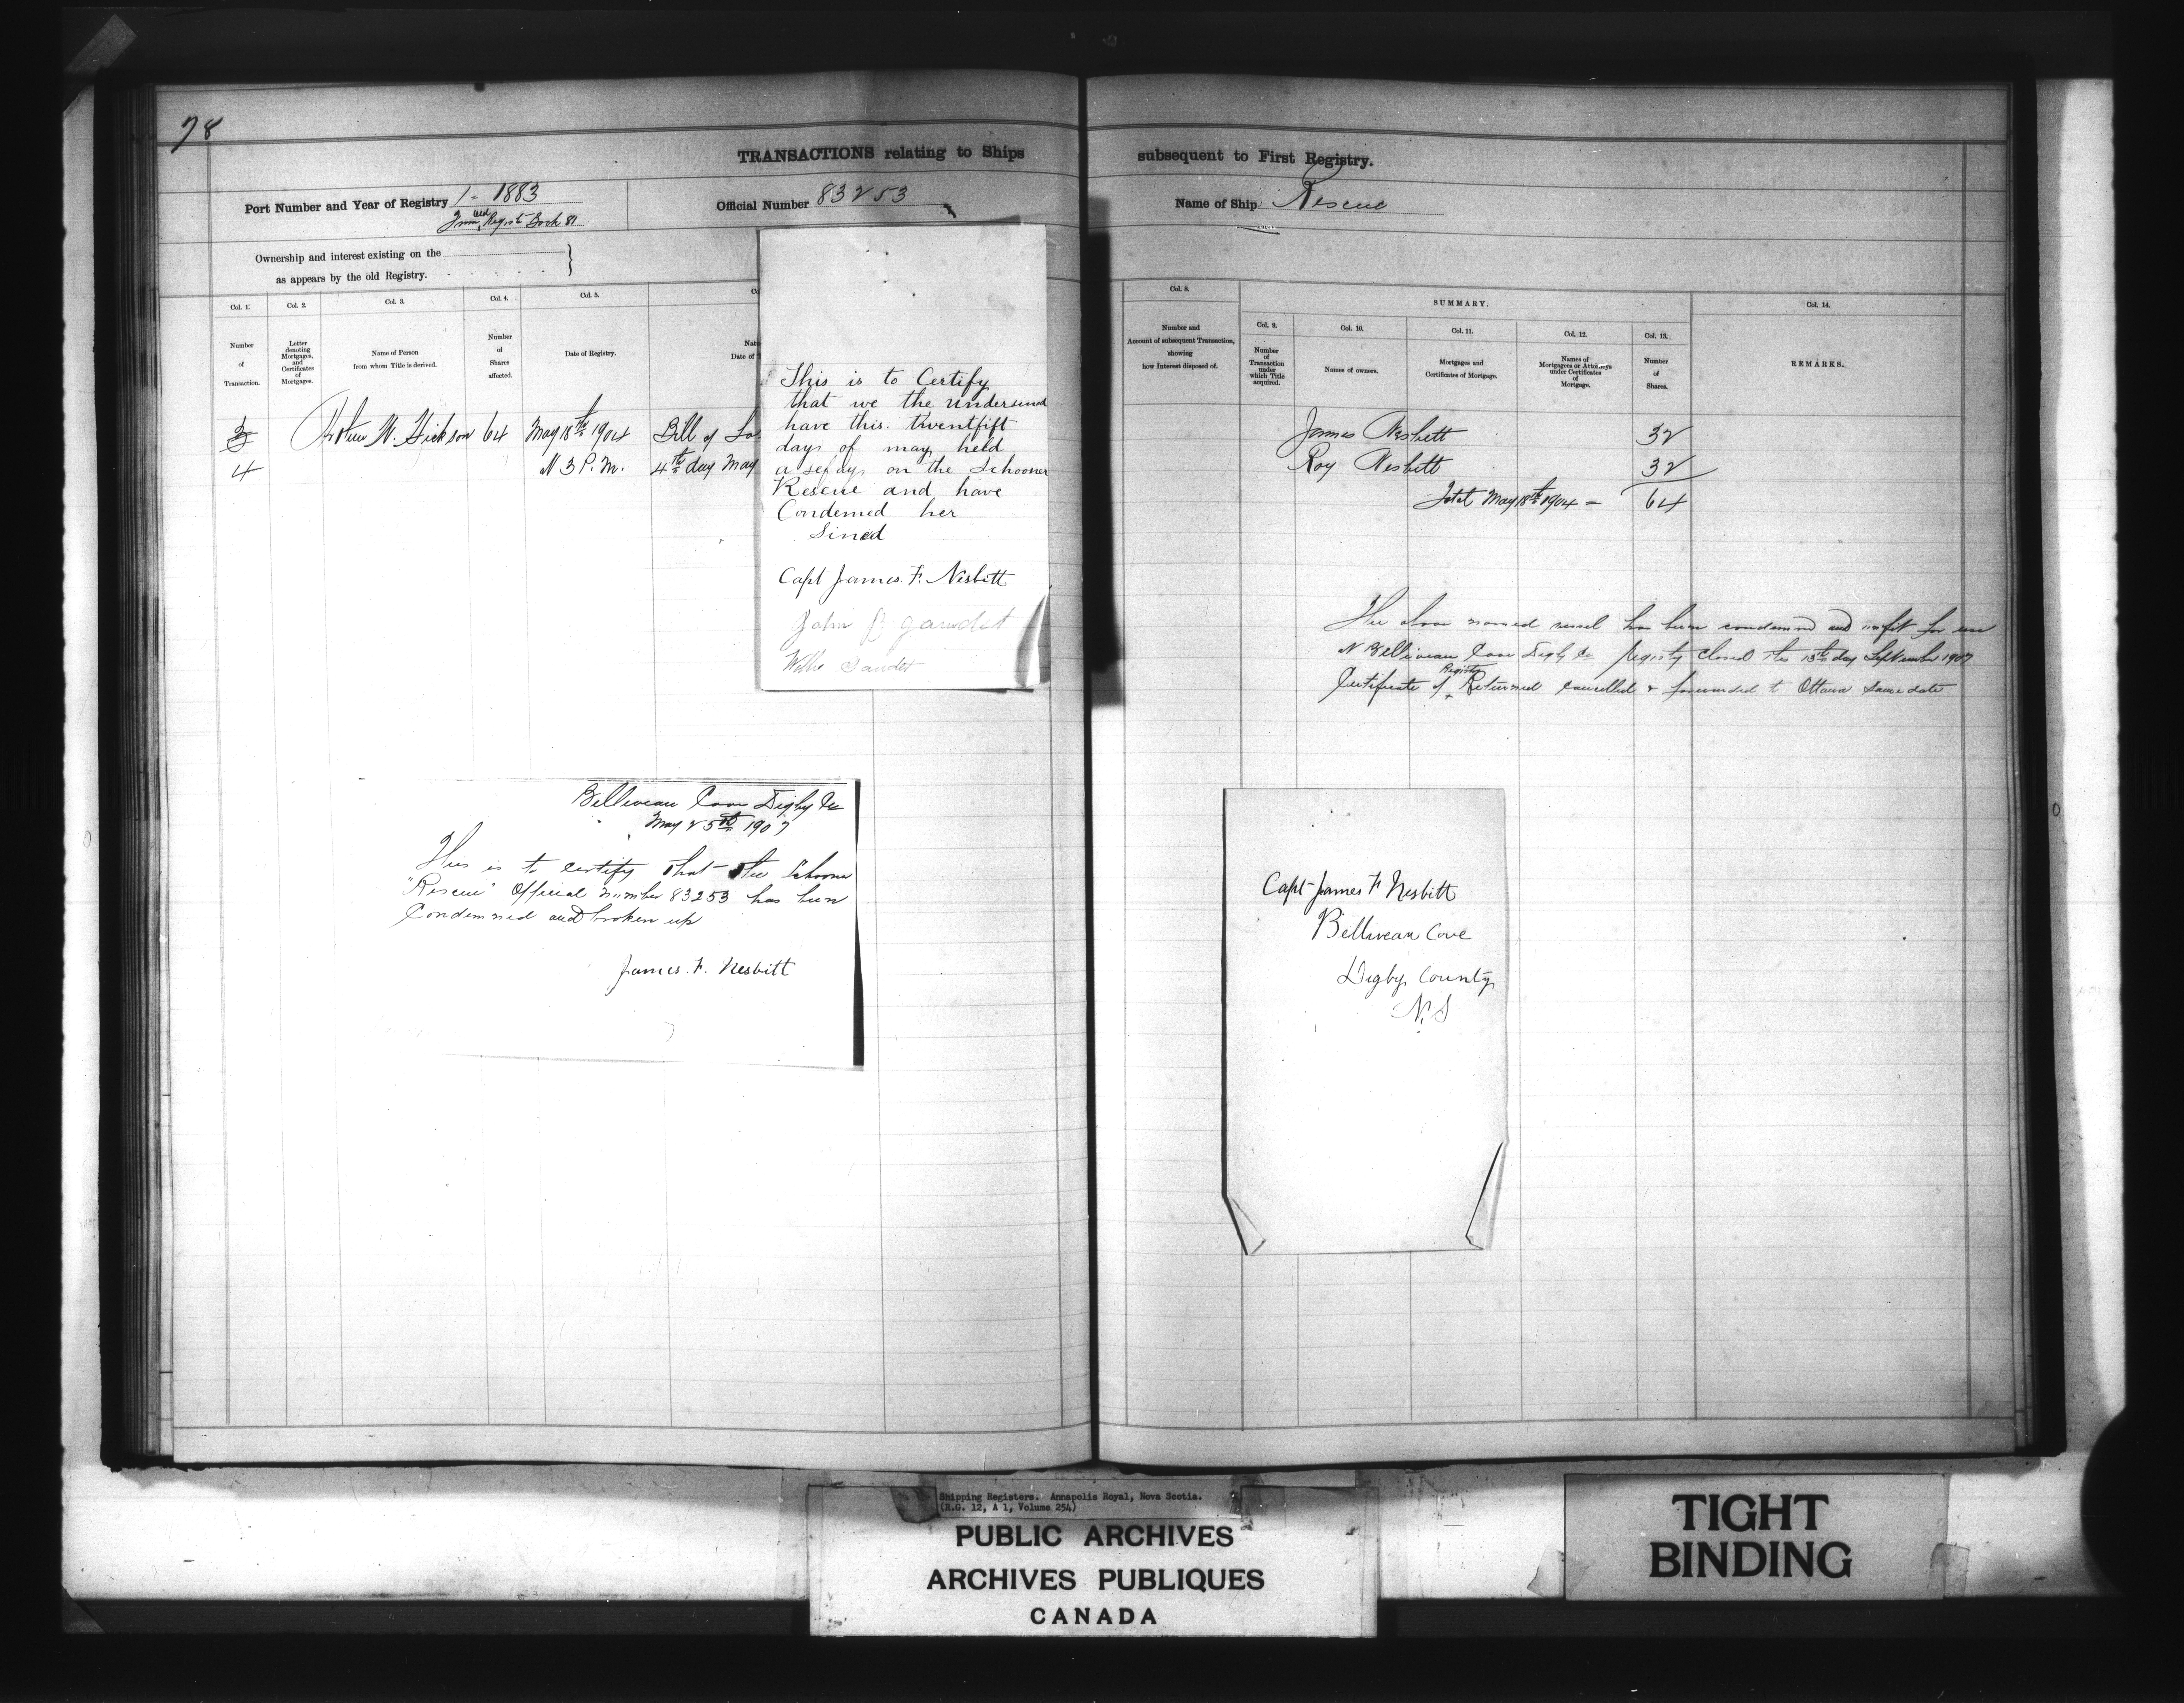 78
TRANSACTIONS relating to Ships subsequent to First Registry.
Port Number and Year of Registry 1 - 1883
old Regist Book 81
Official Number 83253
Name of Ship Rescue
Ownership and interest existing on the
as appears by the old Registry.
Col. 1.
Number
of
Transaction.
Col. 2.
Letter
denoting
Mortgages,
and
Certificates
of
Mortgages.
Col. 3.
Name of Person
from whom Title is derived.
Col. 4.
Number
of
Shares
affected.
Col. 5.
Date of Registry.
Co
Nat
Date of
3
4
W. Hickson 64 May 18th 1904 Bill of Sa
3 P. M. 4th day May
This is to Certify
that we the undersind
have this twentfift
days of may held
a sefays on the Schooner
Rescue and have
Condemed her
Sined
Capt James. F. Nesbitt
John
Willie Gaudet
Belliveau Cove Digby Co
May 25th 1907
This is to certify that the Schooner
"Rescue" Official number 83253 has been
Condemned and broken up
James. F. Nesbitt
Col. 8.
Number and
Account of subsequent Transaction,
showing
how Interest disposed of.
SUMMARY.
Col. 9.
Number
of
Transaction
under
which Title
acquired.
Col. 10.
Names of owners.
Col. 11.
Mortgages and
Certificates of Mortgage.
Col. 12.
Names of
Mortgagees or Attorneys
under Certificates
of
Mortgage.
Col. 13.
Number
of
Shares.
Col. 14.
REMARKS.
James Nesbett 32
Roy Nesbett 32
Total May 18th 1904 = 64
The above named vessel has been condemned and unfit for use
at Belliveau Cove Digby Co Registry Closed this 13th day September 1907
Certificate of Registry Returned cancelled & forwarded to Ottawa same date
Capt James F Nesbitt
Belliveau Cove
Digby County
N.S
Shipping Registers. Annapolis Royal, Nova Scotia.
(R.G. 12, A 1, Volume 254)
PUBLIC ARCHIVES
ARCHIVES PUBLIQUES
CANADA
TIGHT
BINDING